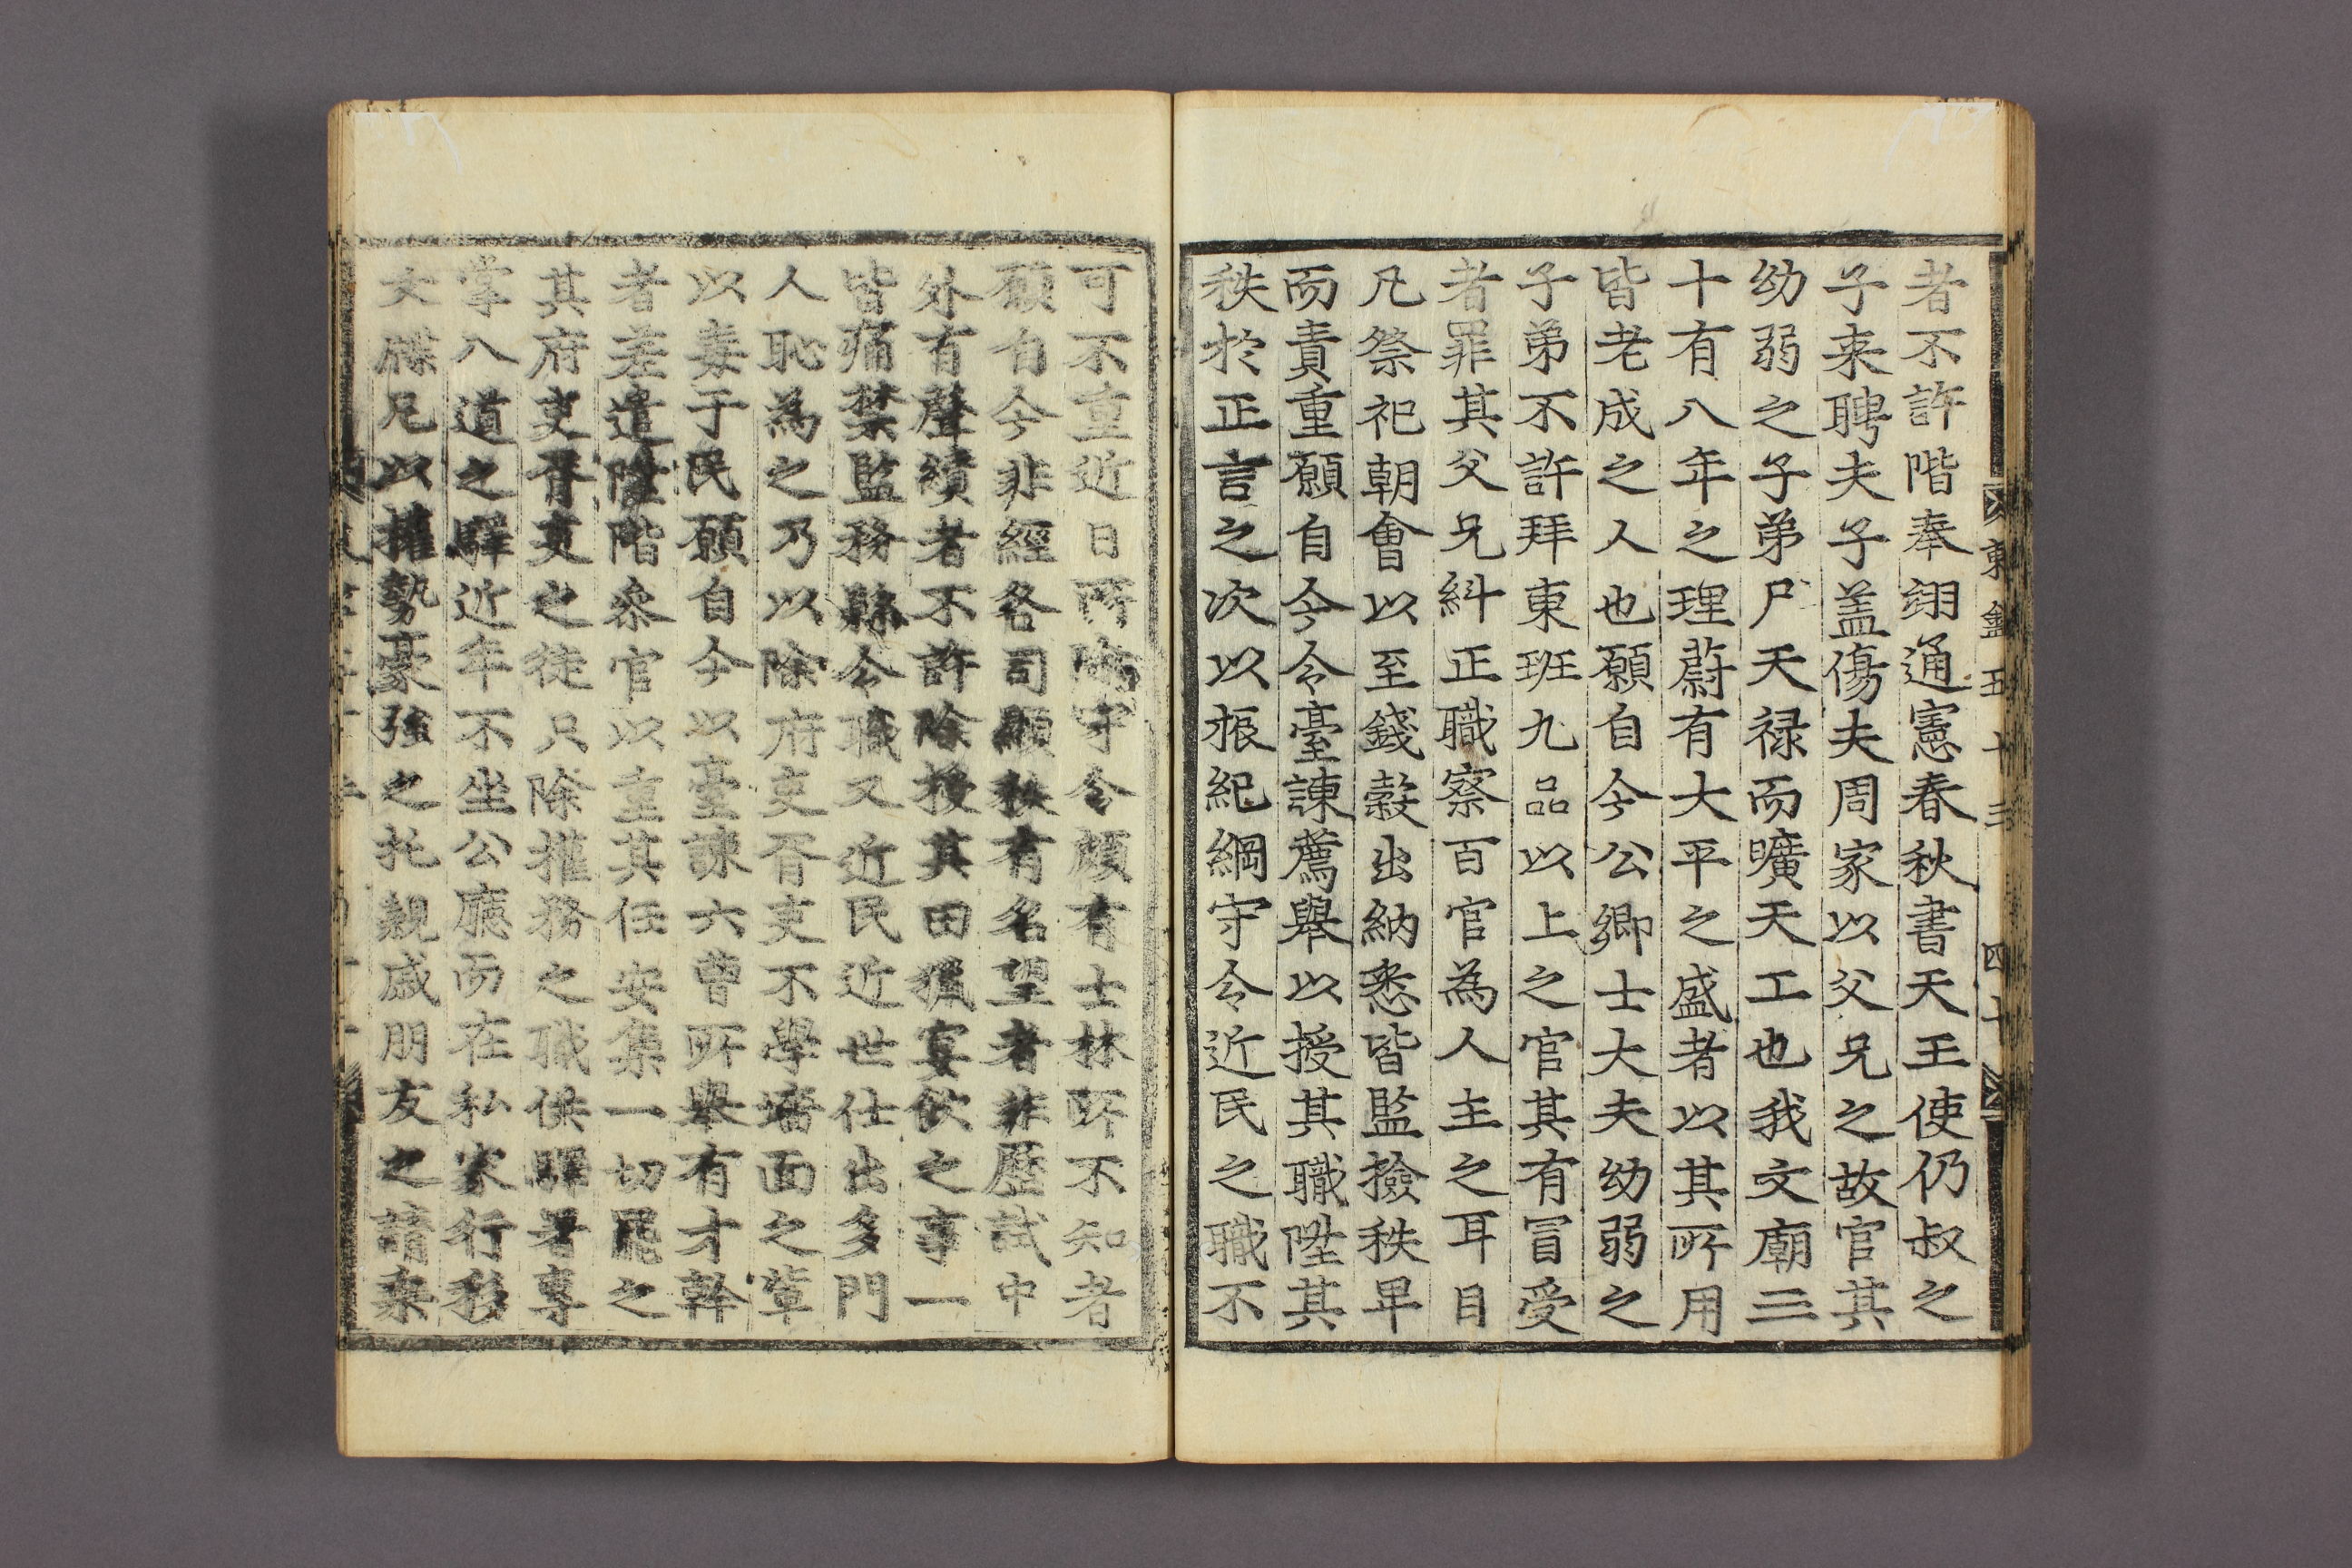 者不許階奉翊通憲春秋書天王使仍叔之
子来聘夫子盖傷夫周家以父兄之故官其
幼弱之子弟尸天禄而曠天工也我文廟三
十有八年之理蔚有大平之盛者以其所用
皆老成之人也願自今公卿士大夫幼弱之
子弟不許拜東班九品以上之官其有冒受
者罪其父兄糾正職察百官為人主之耳目
凡祭祀朝會以至錢穀出納悉皆監撿秩卑
而責重願自今令臺諫薦舉以授其職陞其
秩於正言之次以振紀綱守令近民之職不
可不重近日所除守令頗有士林所不知者
願自今非經各司顯秩有名望者非歷試中
外有聲績者不許除授其田獵宴飲之事一
皆痛禁監務縣令職又近民近世仕出多門
人恥為之乃以除府吏胥吏不學墻面之輩
以毒于民願自今以臺諫六曹所舉有才幹
者差遣陞階叅官以重其任安集一切罷之
其府吏胥吏之徒只除權務之職供驛署專
掌八道之驛近年不坐公廳而在私家行移
文牒凡以權勢豪強之托親戚朋友之請乘
東鑑五十三 四十